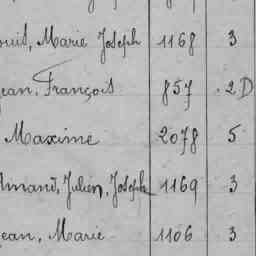 ouis, Marie Joseph 1168 3
Jean, François 857 2D
Maxime 2078 5
Armand, Julien, Joseph 1169 3
Jean, Marie 1106 3